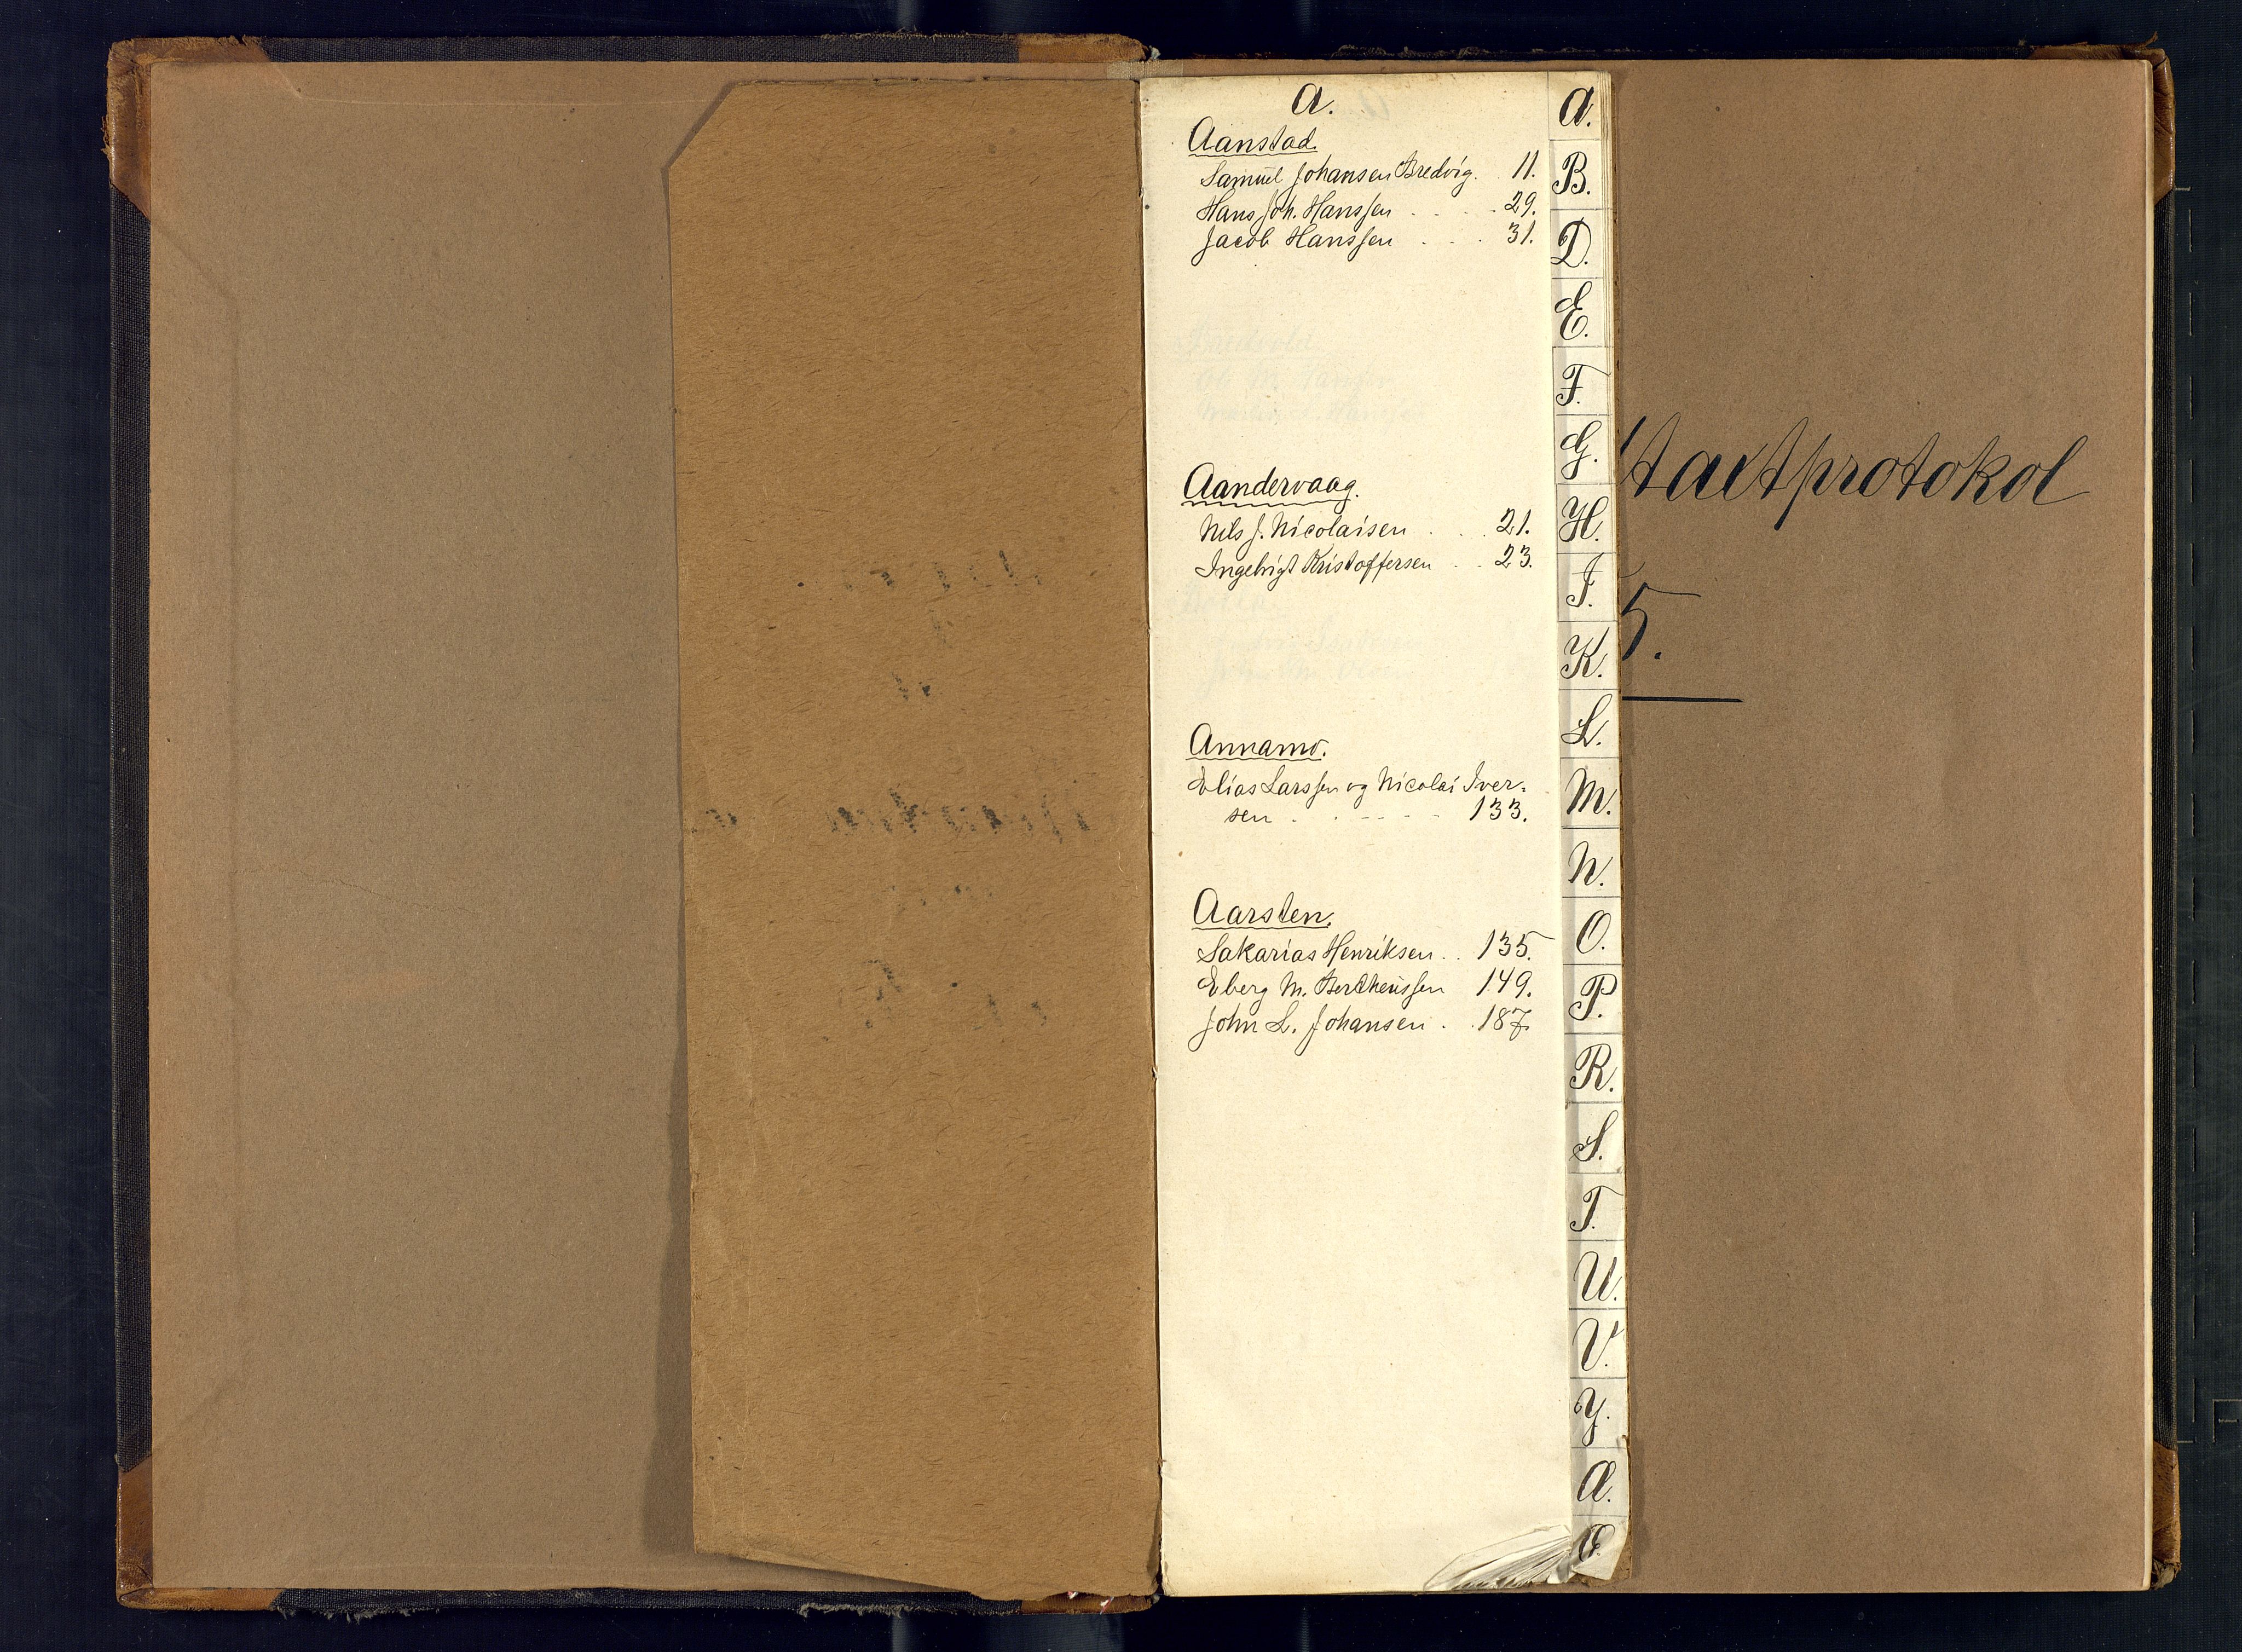 A.
Aanstad.
Samuel Johansen Bredvig. 11.
Hans Joh. Hanssen . . . 29.
Jacob Hanssen . . . 31.
Aandervaag.
Nils J. Nicolaisen . . . 21.
Ingebrigt Kristoffersen . . 23.
Annamo.
Elias Larssen og Nicolai Iver-
sen . . - - - - 133.
Aarsten.
Sakarias Henriksen . . 135.
Eberg M. Bertheussen 149.
John L. Johansen . . 187.
A.
B.
D.
E.
F.
G.
H.
I.
K.
L.
M.
N.
O.
P.
R.
S.
T.
U.
V.
Y.
Æ.
Ø.
taxtprotokol
5.